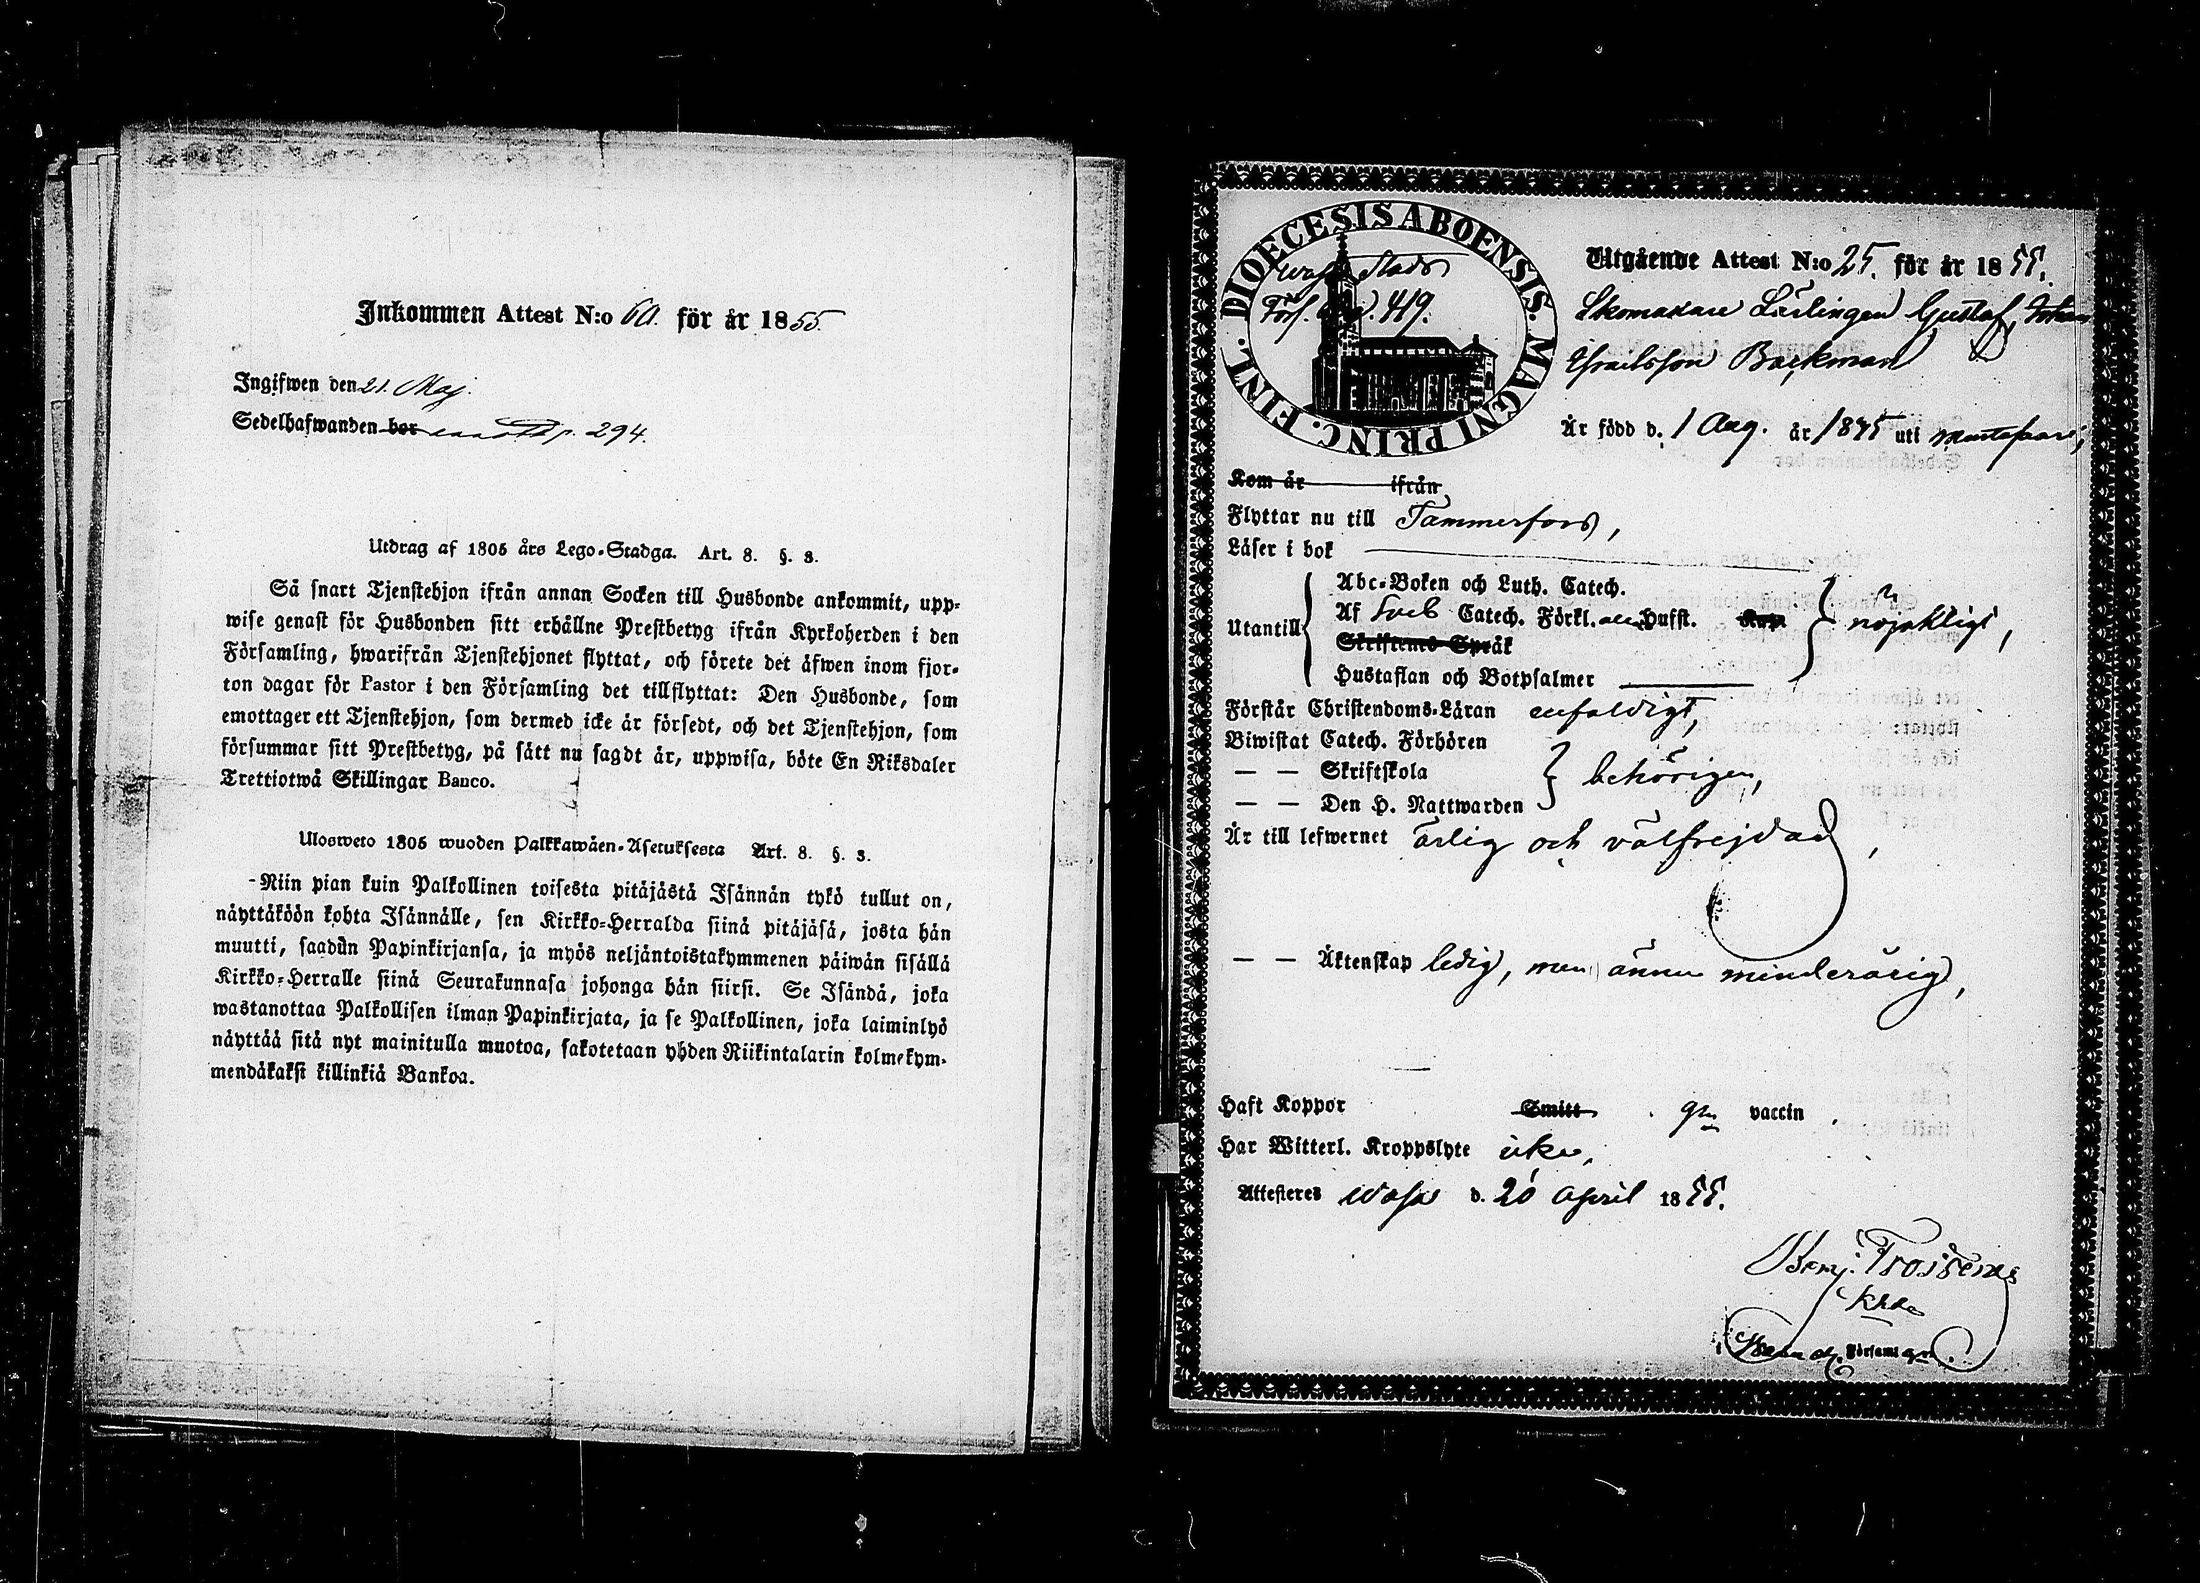 Inkommen Attest N:o 60. för år 1855
Ingifwen den 21. Maj.
Sedelhafwanden bor p. 294.
Utdrag af 1805 års Lego-Stadga. Art. 8. §. 3.
Så snart Tjenstehjon ifrån annan Socken till Husbonde ankommit, upp-
wise genast för Husbonden sitt erhållne Prestbetyg ifrån Kyrkoherden i den
Församling, hwarifrån Tjenstehjonet flyttat, och förete det äfwen inom fjor-
ton dagar för Pastor i den Församling det tillflyttat: Den Husbonde, som
emottager ett Tjenstehjon, som dermed icke är försedt, och det Tjenstehjon, som
försummar sitt Prestbetyg, på sätt nu sagdt är, uppwisa, böte En Riksdaler
Trettiotwå Skillingar Banco.
Ulosweto 1805 wuoden Palkkawäen-Asetuksesta Art. 8. §. 3.
Niin pian kuin Palkollinen toisesta pitäjästä Isännän tykö tullut on,
näyttäköön kohta Isännälle, sen Kirkko-Herralda siinä pitäjäsä, josta hän
muutti, saadun Papinkirjansa, ja myös neljäntoistakymmenen päiwän sisällä
Kirkko-Herralle siinä Seurakunnasa johonga hän siirsi. Se Isändä, joka
wastanottaa Palkollisen ilman Papinkirjata, ja se Palkollinen, joka laiminlyö
näyttää sitä nyt mainitulla muotoa, sakotetaan yhden Riikintalarin kolmekym-
mendäkaksi killinkiä Bankoa.
DIOECESIS ABOENSIS. MAGNI PRINC. FINL.
Wasa Stads
Förs. 419.
Utgående Attest N:o 25. för år 1855.
Skomakare Lärlingen Gustaf Johan
Israelsson Backman
Är född d. 1 Aug. år 1835 uti Mustasaari,
Kom år ifrån
Flyttar nu till Tammerfors,
Läser i bok
Utantill
Abc-Boken och Luth. Catech.
Af Sveb Catech. Förkl. Hufst. Kap.
Skriftenes Språk
Hustaflan och Botpsalmer
nöjaktligt,
Förstår Christendoms-Läran enfaldigt,
Biwistat Catech. Förhören
— — Skriftskola
— — Den H. Nattwarden
behörigen,
Är till lefwernet ärlig och välfrejdad,
— — Äktenskap ledig, men ännu minderårig,
Haft Koppor Smitt gm vaccin
Har Witterl. Kroppslyte icke,
Attesteres Wasa d. 20 April 1855.
Benj. Frosterus
Khde
Församl